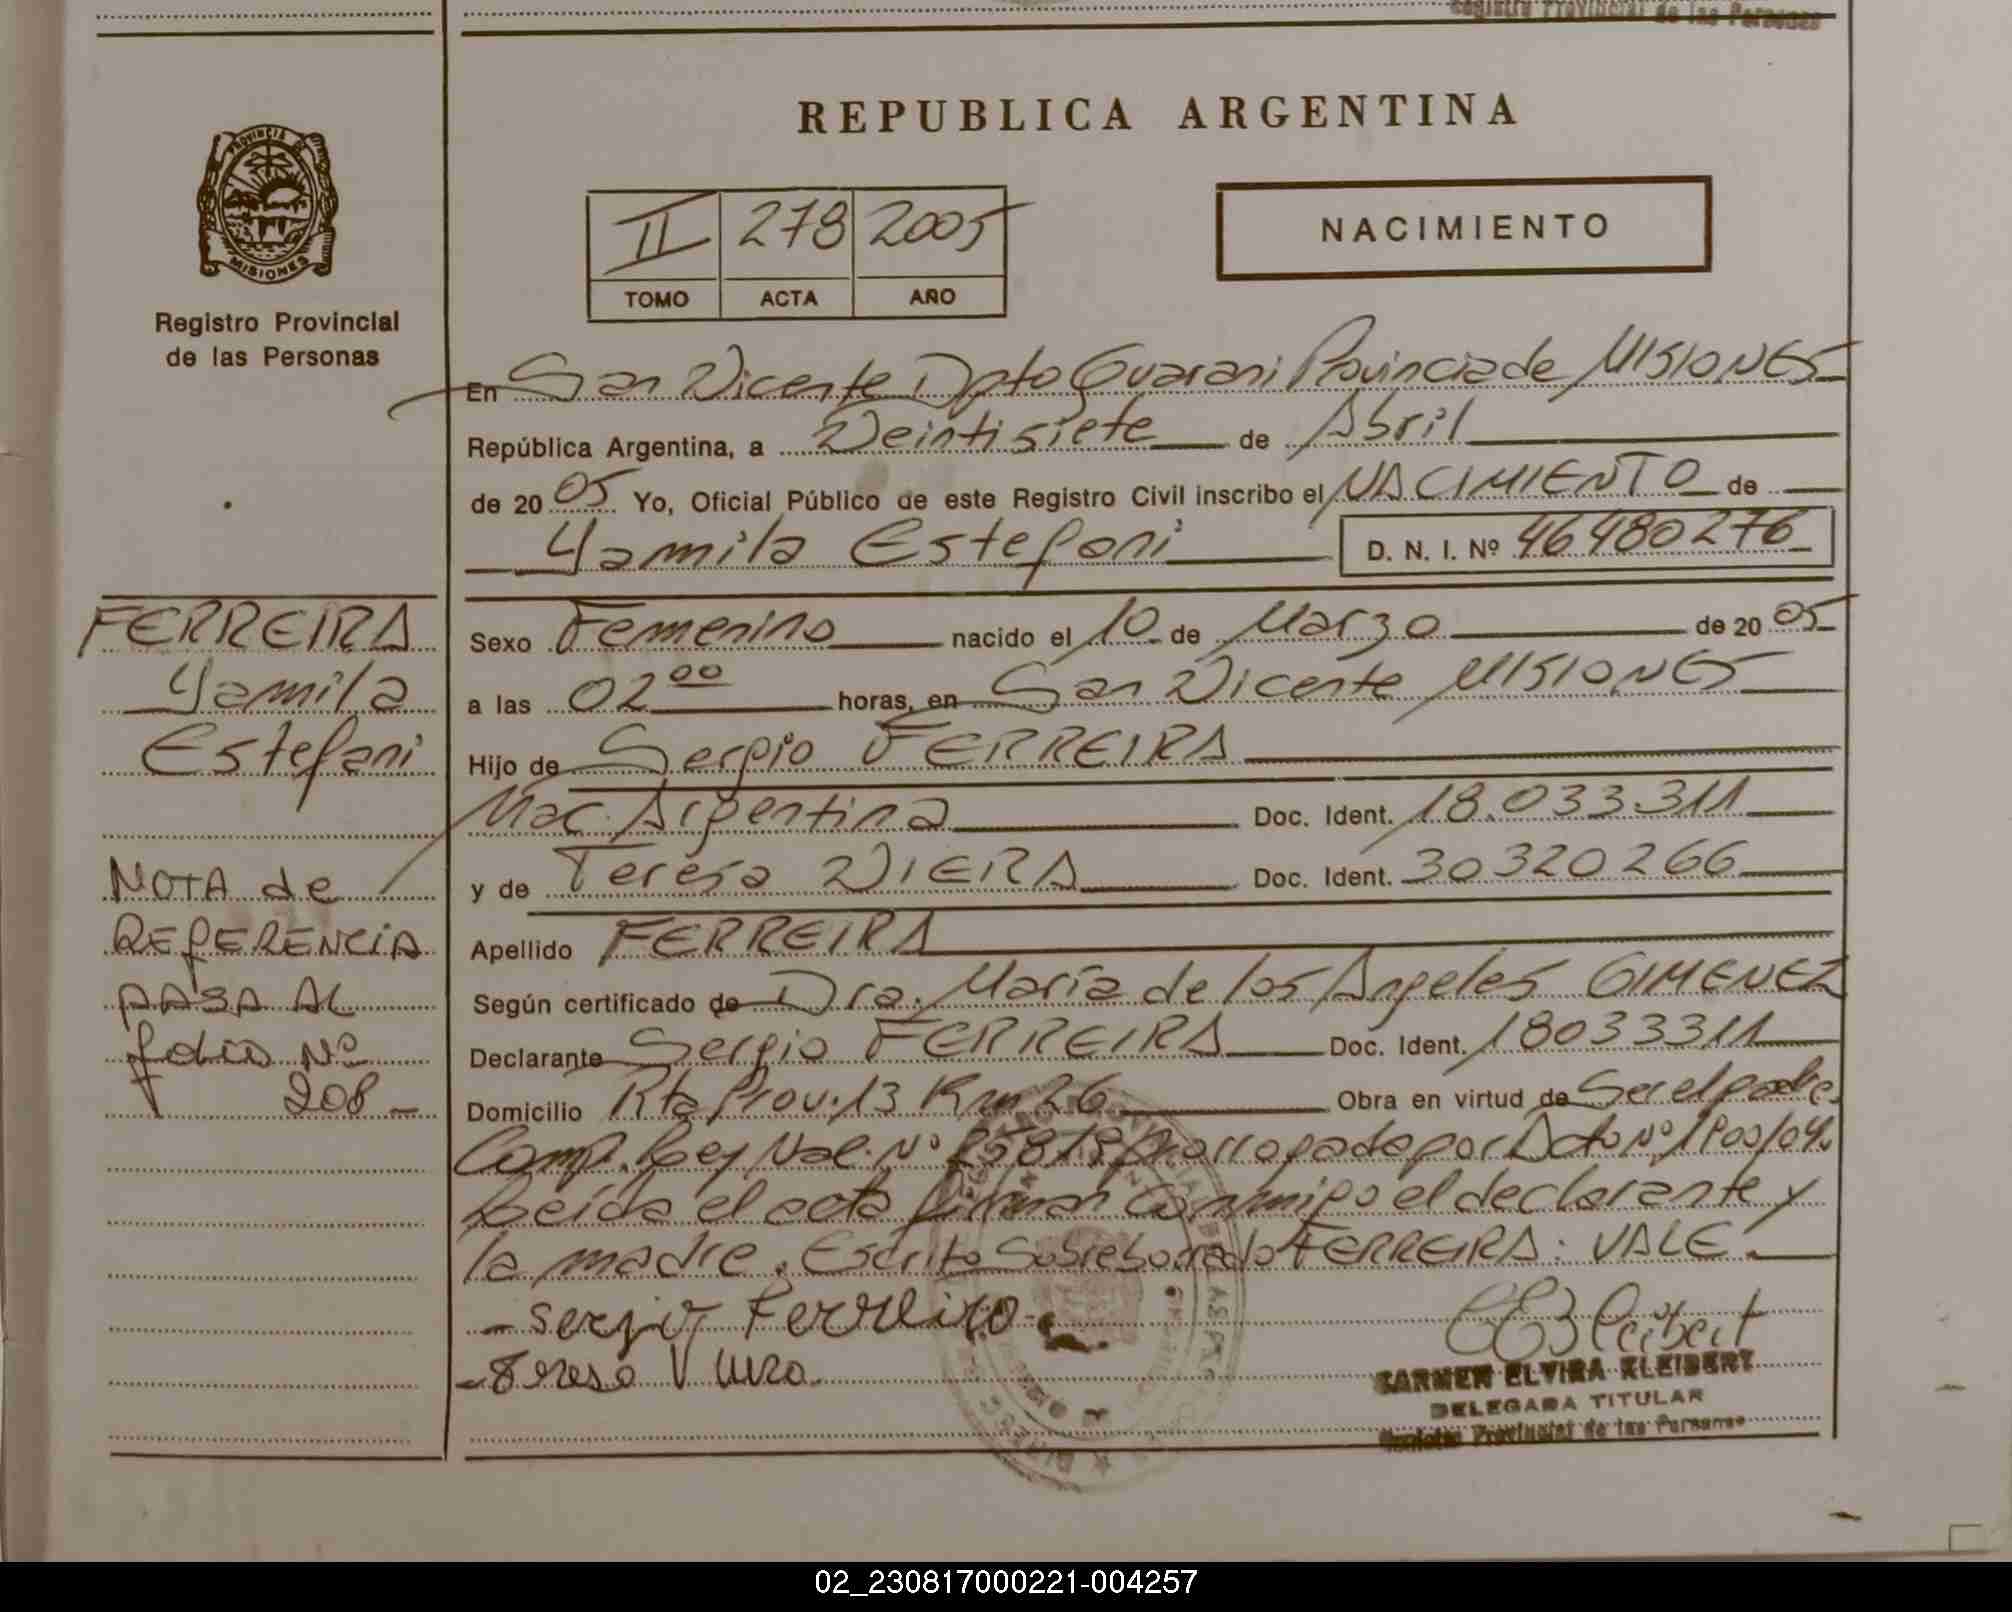 Registro Provincial de las Personas
PROVINCIA DE
MISIONES
Registro Provincial
de las Personas
REPUBLICA ARGENTINA
II 278 2005
TOMO ACTA AÑO
NACIMIENTO
En San Vicente Dpto Guarani Provincia de MISIONES
República Argentina, a Veintisiete de Abril
de 20 05 Yo, Oficial Público de este Registro Civil inscribo el NACIMIENTO de
Yamila Estefani D. N. I. Nº 46480276
FERREIRA
Yamila
Estefani
NOTA de
REFERENCIA
PASA AL
folio Nº
208
Sexo Femenino nacido el 10 de Marzo de 20 05
a las 02 00 horas, en San Vicente MISIONES
Hijo de Sergio FERREIRA
Nac. Argentina Doc. Ident. 18.033.311
y de Teresa VIERA Doc. Ident. 30320266
Apellido FERREIRA
Según certificado de Dra. María de los Angeles GIMENEZ
Declarante Sergio FERREIRA Doc. Ident. 18033311
Domicilio Rta Prov. 13 Km 26 Obra en virtud de Ser el padre
Comp. Ley Nac. Nº 25819 Prorrogado por Dcto Nº
Leída el acta firman conmigo el declarante y
la madre. Escrito Sobreborrado FERREIRA: VALE.
- Sergio Ferreira
- Teresa Viera
CARMEN ELVIRA KLEIBERT
DELEGADA TITULAR
Registro Provincial de las Personas
02_230817000221-004257